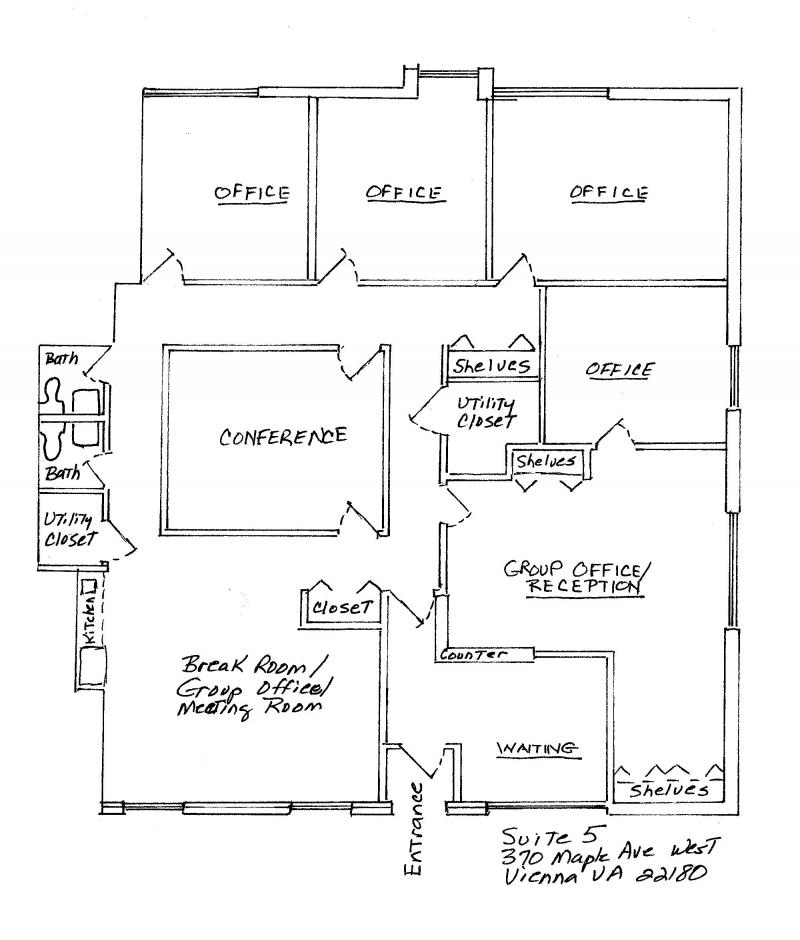 OFFICE
OFFICE
OFFICE
Bath
Shelves
OFFICE
UTILITY
CLOSET
CONFERENCE
Bath
Shelves
UTILITY
CLOSET
GROUP OFFICE/
RECEPTION
Kitchen
CLOSET
COUNTER
Break Room/
Group Office/
Meeting Room
WAITING
Shelves
ENTRANCE
Suite 5
370 Maple Ave West
Vienna VA 22180